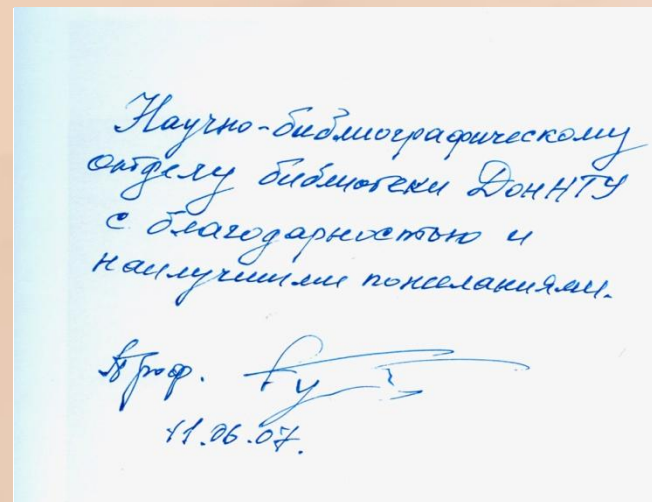 Научно-библиографическому
отделу библиотеки ДонНТУ
с благодарностью и
наилучшими пожеланиями.
Проф.
11.06.07.